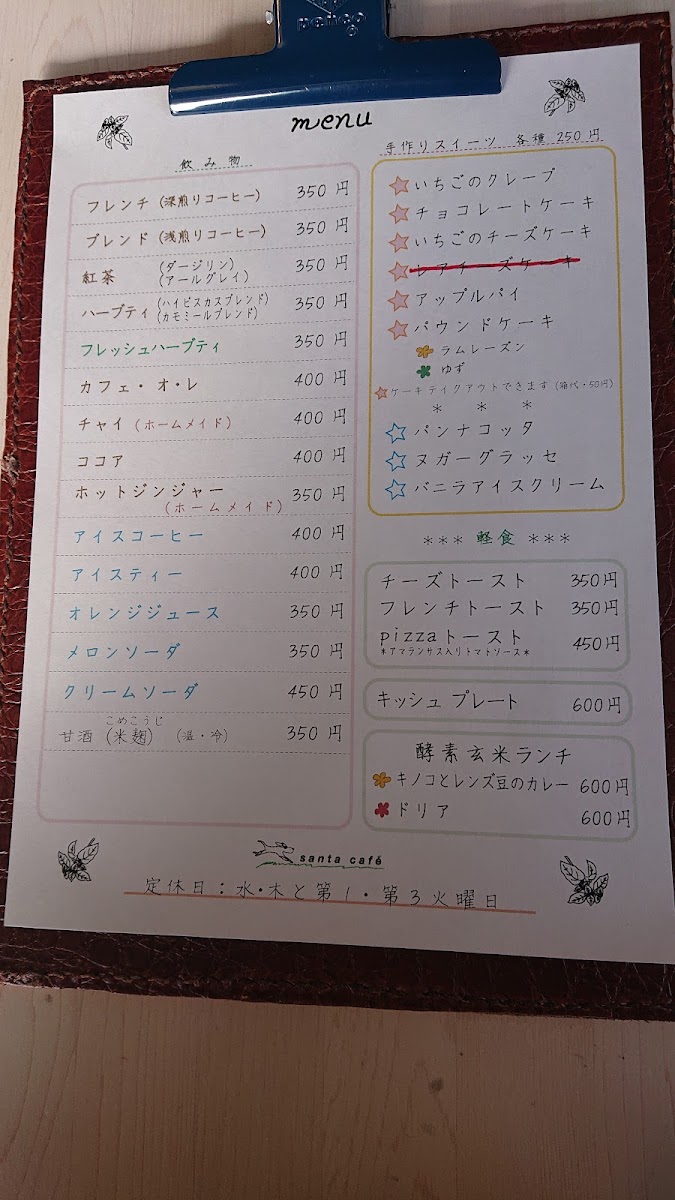 penco
menu
飲み物
フレンチ (深煎りコーヒー) 350円
ブレンド (浅煎りコーヒー) 350円
紅茶 (ダージリン) (アールグレイ) 350円
ハーブティ (ハイビスカスブレンド) (カモミールブレンド) 350円
フレッシュハーブティ 350円
カフェ・オ・レ 400円
チャイ (ホームメイド) 400円
ココア 400円
ホットジンジャー 350円
(ホームメイド)
アイスコーヒー 400円
アイスティー 400円
オレンジジュース 350円
メロンソーダ 350円
クリームソーダ 450円
こめこうじ
甘酒 (米麹) (温・冷) 350円
手作りスイーツ 各種 250円
いちごのクレープ
チョコレートケーキ
いちごのチーズケーキ
レアチーズケーキ
アップルパイ
パウンドケーキ
ラムレーズン
ゆず
ケーキテイクアウトできます (箱代・50円)
* * *
パンナコッタ
ヌガーグラッセ
バニラアイスクリーム
*** 軽食 ***
チーズトースト 350円
フレンチトースト 350円
pizzaトースト 450円
*アマランサス入りトマトソース*
キッシュ プレート 600円
酵素玄米ランチ
キノコとレンズ豆のカレー 600円
ドリア 600円
santa café
定休日：水・木と第1・第3火曜日